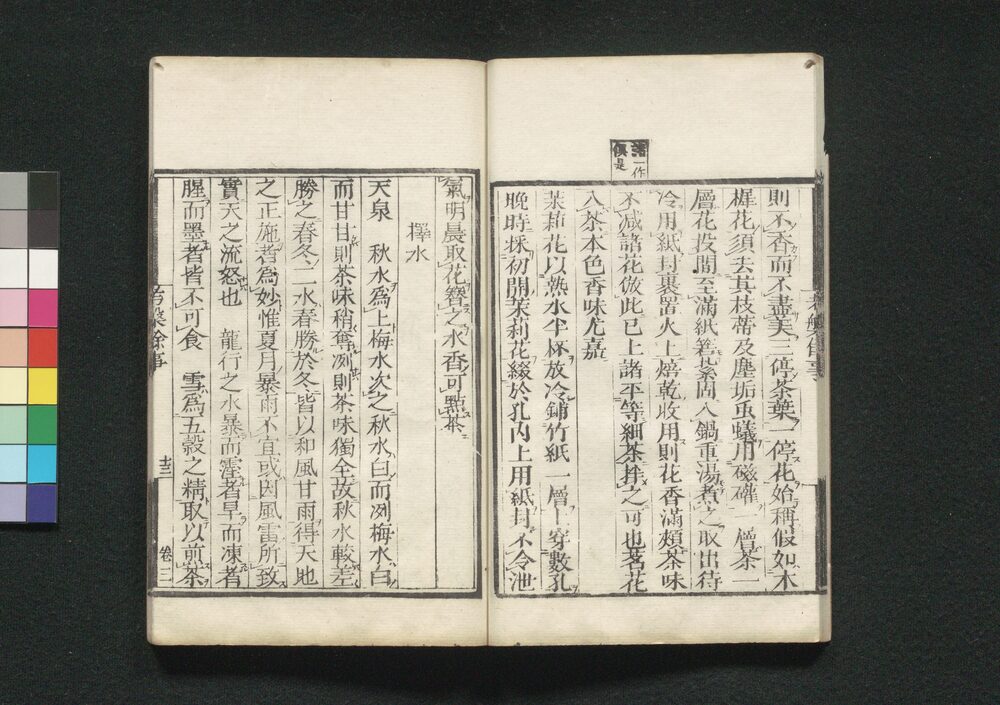 諸一作
俱是
則不香而不盡美三停茶葉一停花始稱假如木
樨花須去其枝蒂及塵垢虫蟻用磁礶一層茶一
層花投間至滿紙箬縶固入鍋重湯煮之取出待
冷用紙封裹置火上焙乾收用則花香滿頰茶味
不减諸花倣此已上諸平等細茶拌之可也茗花
入茶本色香味尤嘉
茉莉花以熱水半杯放冷鋪竹紙一層上穿數孔
晚時採初開茉莉花綴於孔內上用紙封不令泄
氣明晨取花簪之水香可點茶
擇水
天泉　秋水爲上梅水次之秋水白而冽梅水白
而甘甘則茶味稍奪冽則茶味獨全故秋水較差
勝之春冬二水春勝於冬皆以和風甘雨得天地
之正施者爲妙惟夏月暴雨不宜或因風雷所致
實天之流怒也　龍行之水暴而霪者旱而凍者
腥而墨者皆不可食　雪爲五穀之精取以煎茶
考槃餘事
十三
卷二